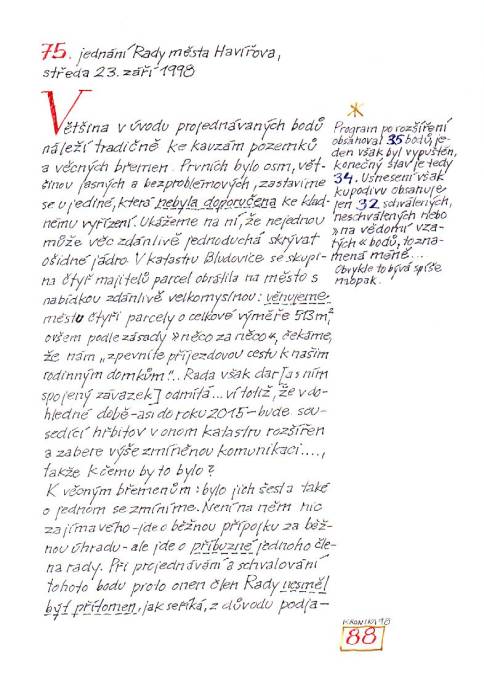 75. jednání Rady města Havířova,
středa 23. září 1998
Většina v úvodu projednávaných bodů
náleží tradičně ke kauzám pozemků
a věcných břemen. Prvních bylo osm, vět-
šinou jasných a bezproblémových, zastavíme
se u jediné, která nebyla doporučena ke klad-
nému vyřízení. Ukážeme na ní, že nejednou
může věc zdánlivě jednoduchá skrývat
ošidné jádro. V katastru Bludovice se skupi-
na čtyř majitelů parcel obrátila na město s
nabídkou zdánlivě velkomyslnou: věnujeme
městu čtyři parcely o celkové výměře 513m²,
ovšem podle zásady »něco za něco«, čekáme,
že nám „zpevníte příjezdovou cestu k našim
rodinným domkům"... Rada však dar [a s ním
spojený závazek] odmítla... ví totiž, že v do-
hledné době - asi do roku 2015 - bude sou-
sedící hřbitov v onom katastru rozšířen
a zabere výše zmíněnou komunikaci....,
takže k čemu by to bylo?
K věcným břemenům: bylo jich šest a také
o jednom se zmíníme. Není na něm nic
zajímavého - jde o běžnou přípojku za běž-
nou úhradu - ale jde o příbuzné jednoho čle-
na rady. Při projednávání a schvalování
tohoto bodu proto onen člen Rady nesměl
být přítomen, jak se říká, z důvodu podja-
*
Program po rozšíření
obsahoval 35 bodů, je-
den však byl vypuštěn,
konečný stav je tedy
34. Usnesení však
kupodivu obsahuje
jen 32 schválených,
neschválených nebo
»na vědomí vza-
tých« bodů, to zna-
mená méně...
Obvykle to bývá spíše
naopak.
KRONIKA 98
88